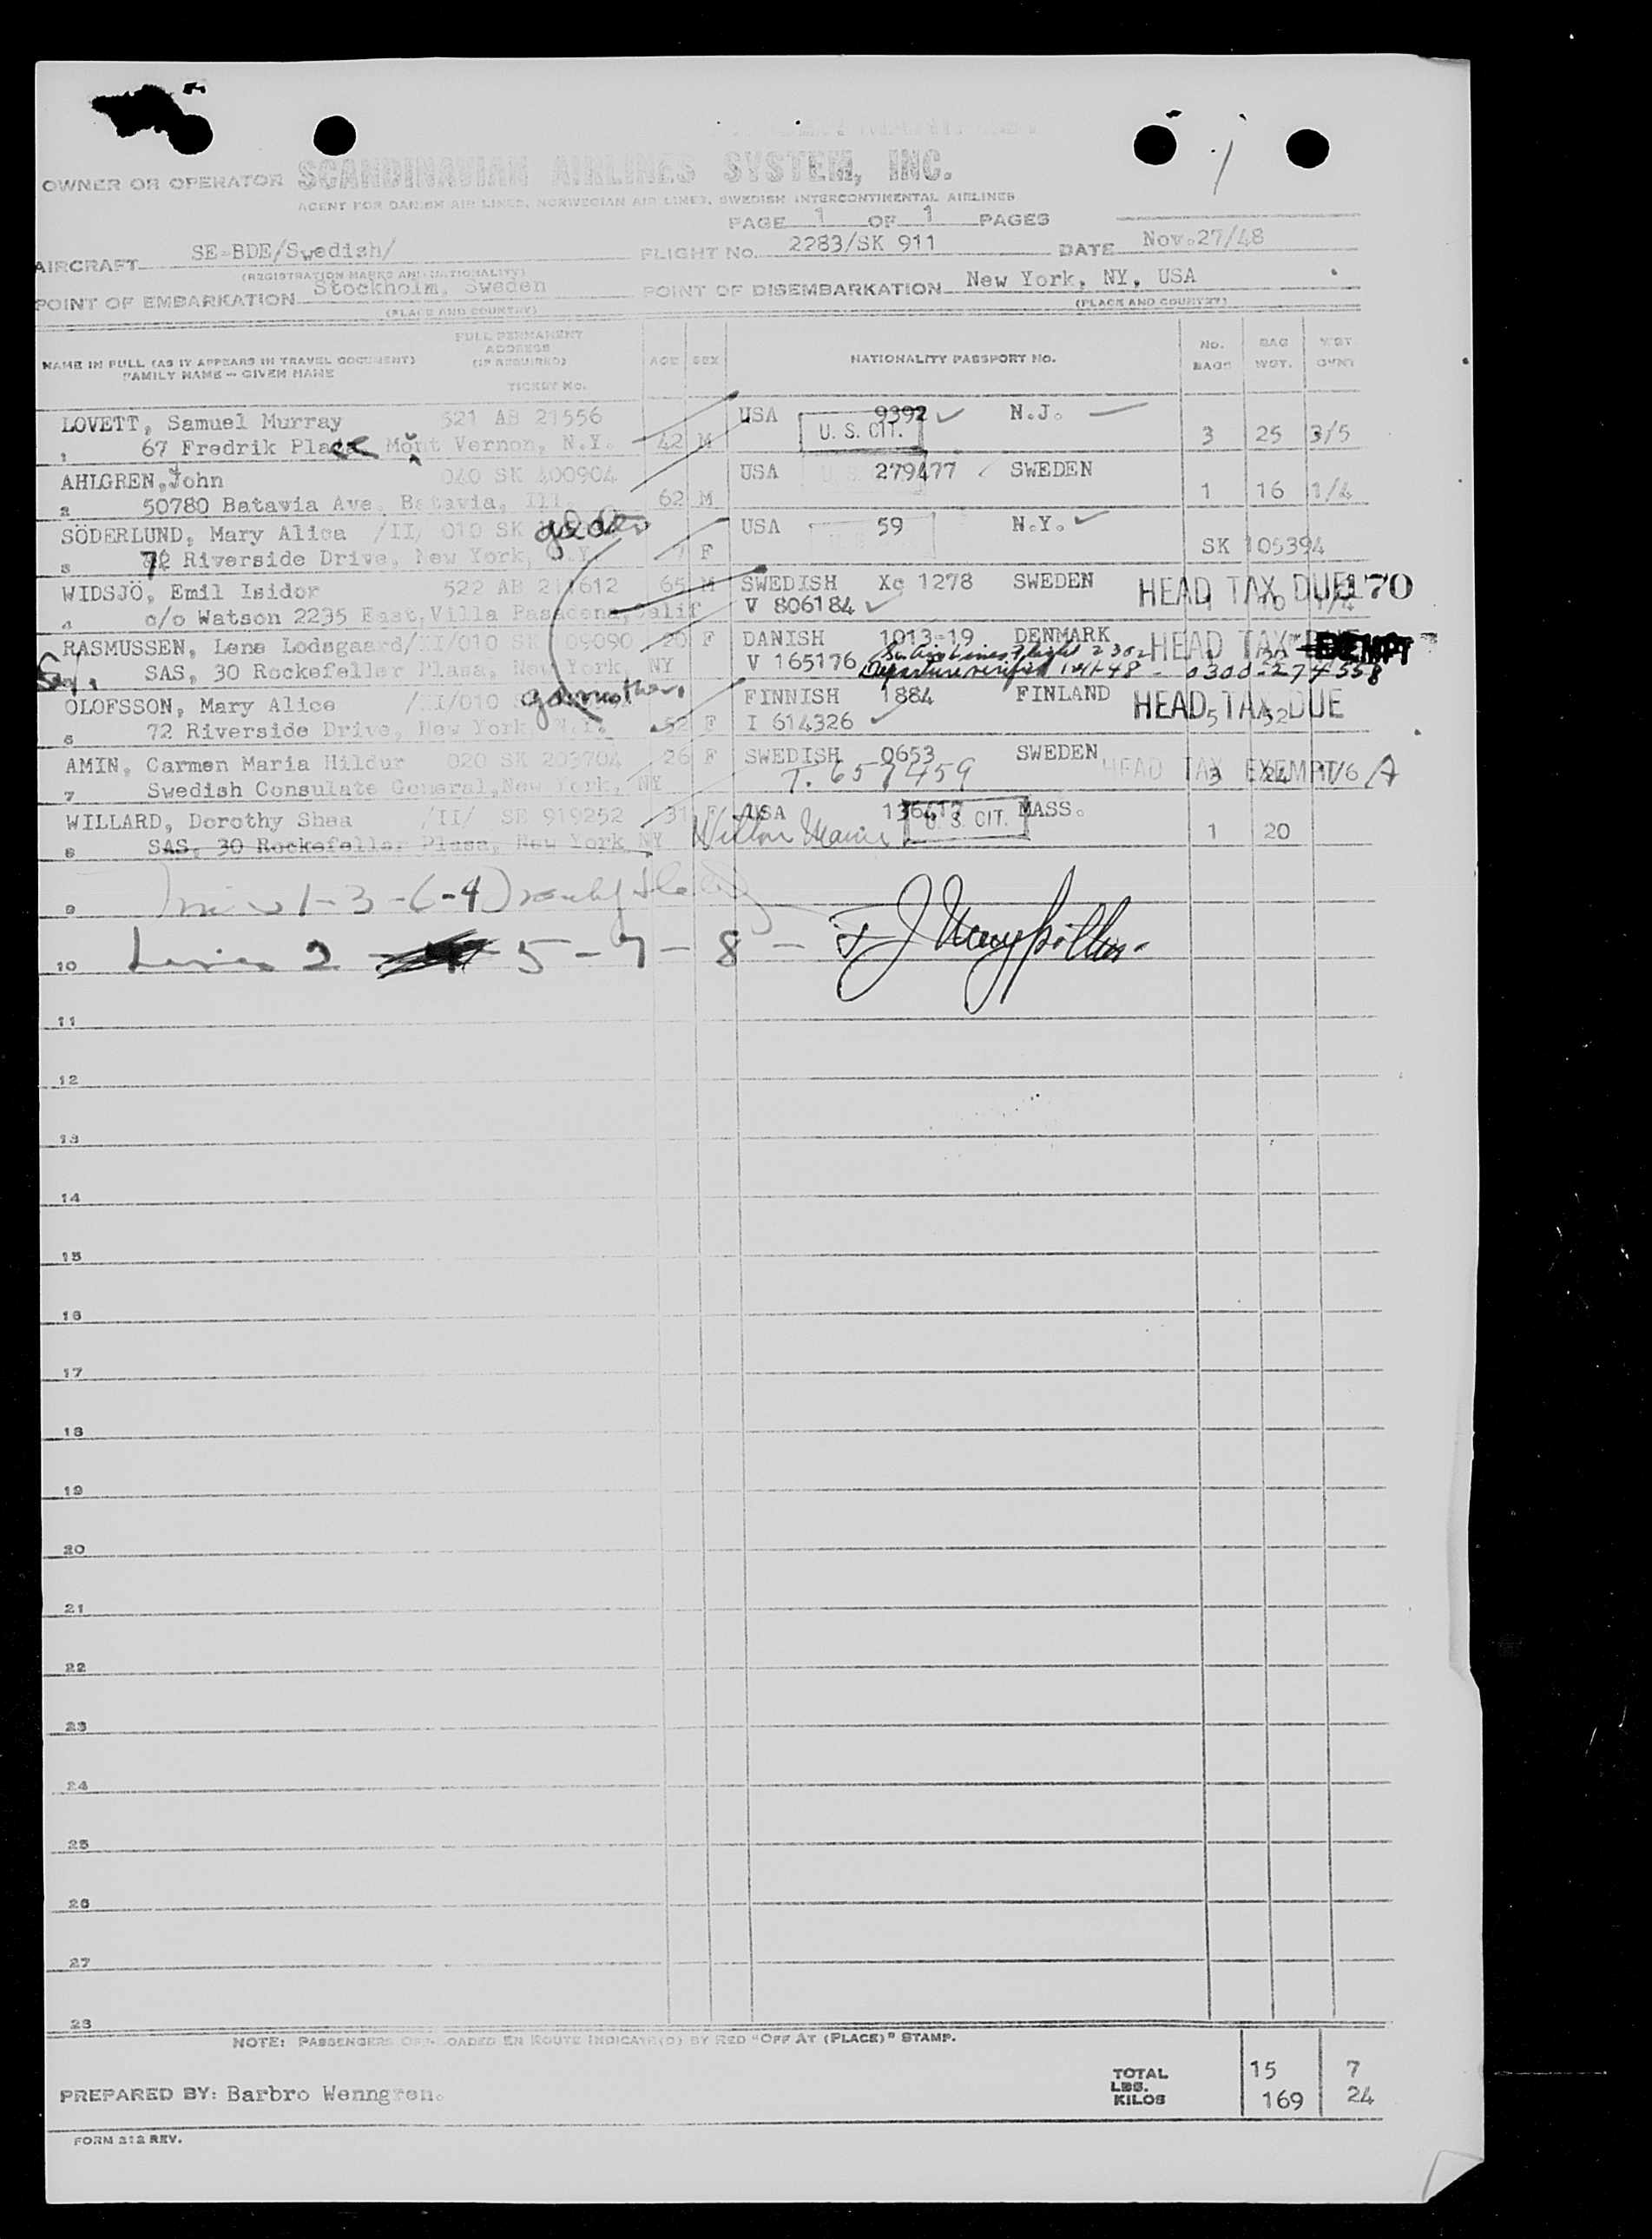 OWNER OR OPERATOR SCANDINAVIAN AIRLINES SYSTEM, INC.
AGENT FOR DANISH AIR LINES, NORWEGIAN AIR LINES, SWEDISH INTERCONTINENTAL AIRLINES
PAGE 1 OF 1 PAGES
AIRCRAFT SE-BDE/Swedish/ FLIGHT No. 2283/SK 911 DATE Nov.27/48
(REGISTRATION MARKS AND NATIONALITY)
POINT OF EMBARKATION Stockholm, Sweden POINT OF DISEMBARKATION New York, NY, USA
(PLACE AND COUNTRY) (PLACE AND COUNTRY)
NAME IN FULL (AS IT APPEARS IN TRAVEL DOCUMENT) FAMILY NAME — GIVEN NAME FULL PERMANENT ADDRESS (IF REQUIRED) TICKET No. AGE SEX NATIONALITY PASSPORT NO. No. BAGS BAG WGT.
LOVETT, Samuel Murray 521 AB 21556 USA 9392 N.J.
1 67 Fredrik Place Mont Vernon, N.Y. 42 M U. S. CIT. 3 25 3/5
AHLGREN, John 040 SK 400904 USA 279477 SWEDEN
2 50780 Batavia Ave. Batavia, Ill. 62 M 1 16 1/4
SÖDERLUND, Mary Alice /II/ 010 SK USA 59 N.Y.
3 72 Riverside Drive, New York, N.Y. 7 F SK 105394
WIDSJÖ, Emil Isidor 522 AB 211612 65 M SWEDISH Xc 1278 SWEDEN HEAD TAX DUE 170
4 c/o Watson 2235 East, Villa Pasadena, Calif V 806184
RASMUSSEN, Lene Lodsgaard/II/010 SK 09090 20 F DANISH 1013-19 DENMARK HEAD TAX EXEMPT
SAS, 30 Rockefeller Plasa, New York, NY V 165176 Departure verified 0300-274558
OLOFSSON, Mary Alice /II/010 godmother FINNISH 1884 FINLAND HEAD TAX DUE
6 72 Riverside Drive, New York, N.Y. 52 F I 614326 5 52
AMIN, Carmen Maria Hildur 020 SK 203704 26 F SWEDISH 0653 SWEDEN HEAD TAX EXEMPT
7 Swedish Consulate General, New York, NY T. 657459 3 24 1/6 A
WILLARD, Dorothy Shea /II/ SE 919252 31 F USA 136417 MASS.
8 SAS, 30 Rockefeller Plasa, New York NY U. S. CIT. 1 20
9
10 Lines 2 5-7-8-
11
12
13
14
15
16
17
18
19
20
21
22
23
24
25
26
27
28
NOTE: PASSENGERS OFF-LOADED EN ROUTE INDICATE(D) BY RED "OFF AT (PLACE)" STAMP.
TOTAL 15 7
LBS.
PREPARED BY: Barbro Wenngren. KILOS 169 24
FORM 312 REV.